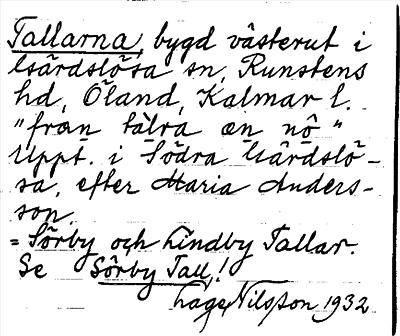 Tallarna, bygd västerut i
Gärdslösa sn, Runstens
hd, Öland, Kalmar l.
"från tàlra en nô"
Uppt. i Södra Gärdslö-
sa, efter Maria Anders-
son.
= Sörby och Lindby Tallar.
Se Sörby Tall!
Lage Nilsson 1932